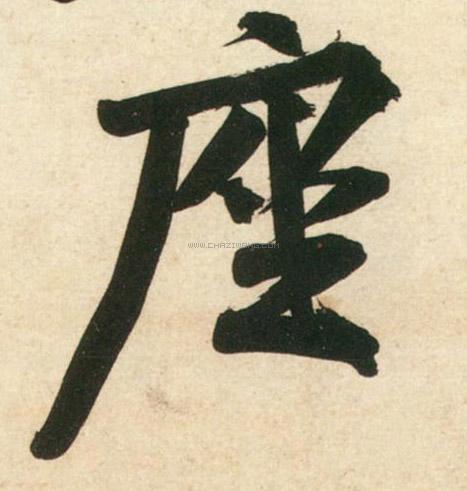 座
WWW.CHAZIWANG.COM